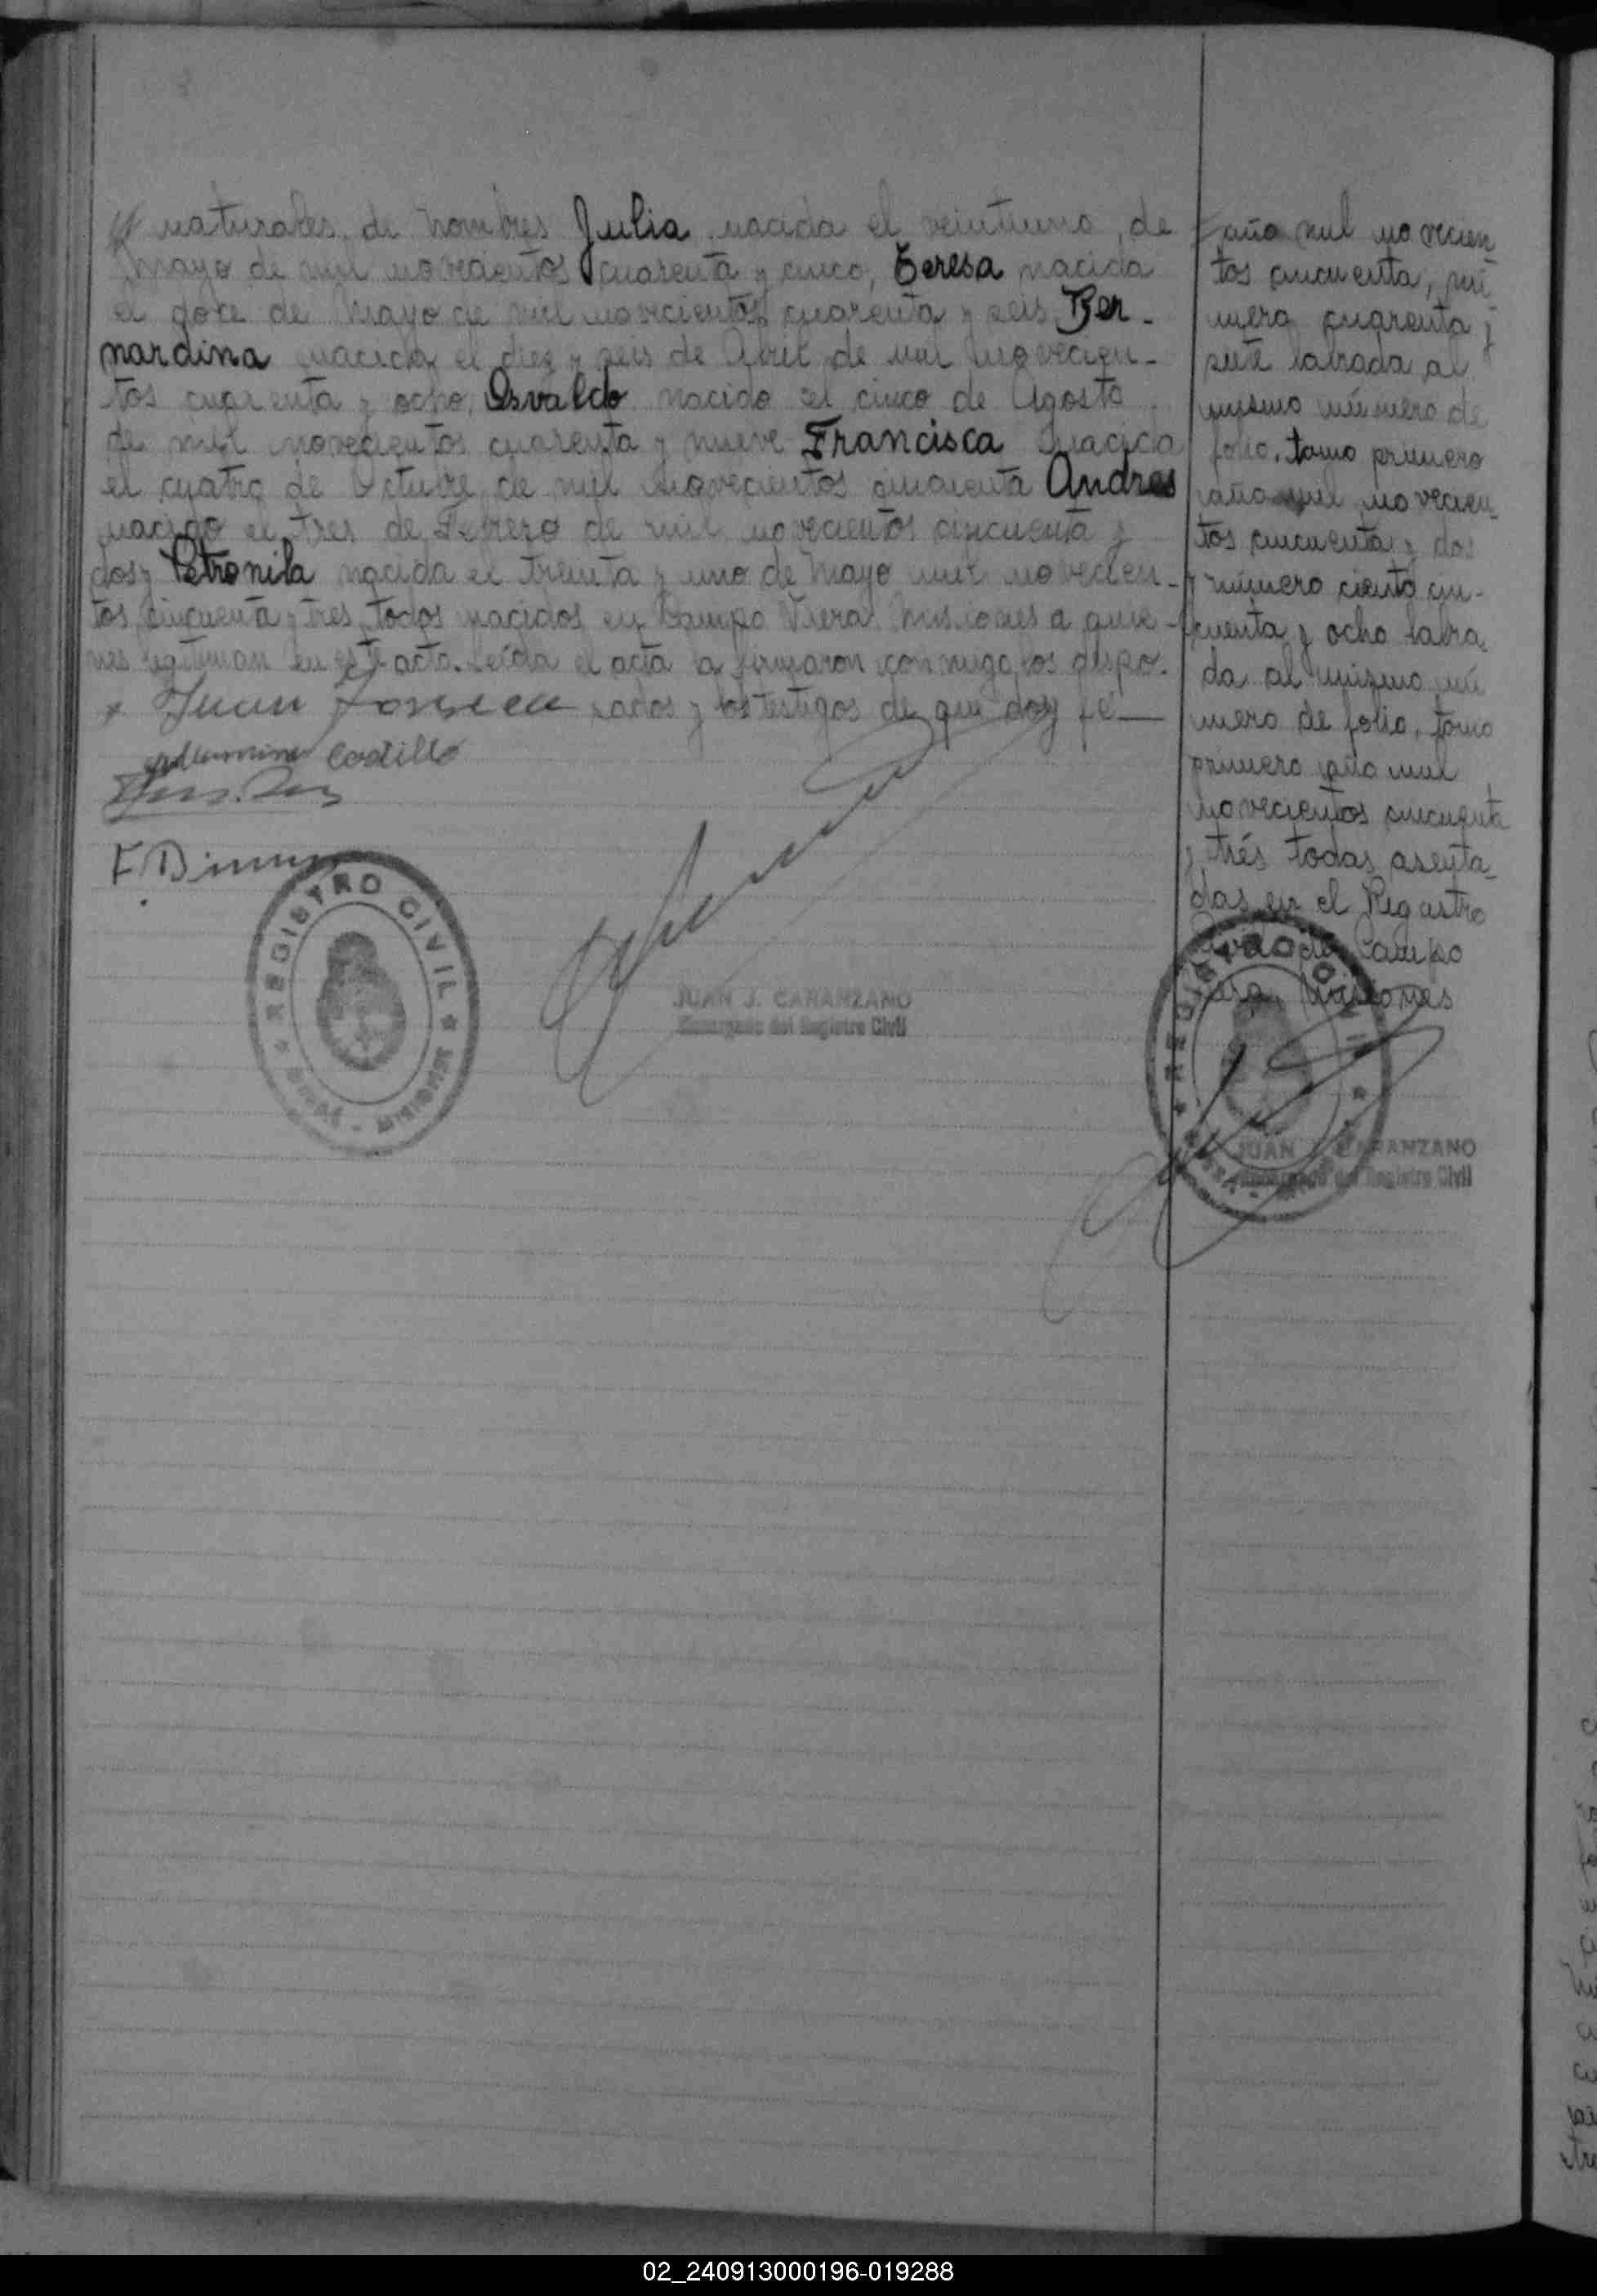 naturales de nombres Julia nacida el veintiuno de
Mayo de mil novecientos cuarenta y cinco, Teresa nacida
el doce de Mayo de mil novecientos cuarenta y seis Ber-
nardina nacida el diez y seis de Abril de mil novecien-
tos cuarenta y ocho, Osvaldo nacido el cinco de Agosto
de mil novecientos cuarenta y nueve Francisca nacida
el cuatro de Octubre de mil novecientos cincuenta Andres
nacido el tres de Febrero de mil novecientos cincuenta y
dos y Petronila nacida el treinta y uno de Mayo mil novecien-
tos cincuenta y tres, todos nacidos en Campo Viera Misiones a quie-
nes legitiman en este acto. Leída el acta la firmaron conmigo los despo-
sados y los testigos de que doy fé
Juan Fonseca
Castillo
F.
REGISTRO CIVIL
MISIONES
JUAN J. CARANZANO
Encargado del Registro Civil
año mil novecien
tos cincuenta, nú
mero cuarenta y
siete labrada al
mismo número de
folio, tomo primero
año mil novecien-
tos cincuenta y dos
y número ciento cin-
cuenta y ocho labra
da al mismo nú
mero de folio, tomo
primero año mil
novecientos cincuenta
y trés todas asenta-
das en el Registro
Civil de Campo
Viera, Misiones
REGISTRO CIVIL
JUAN J. CARANZANO
Encargado del Registro Civil
02_240913000196-019288